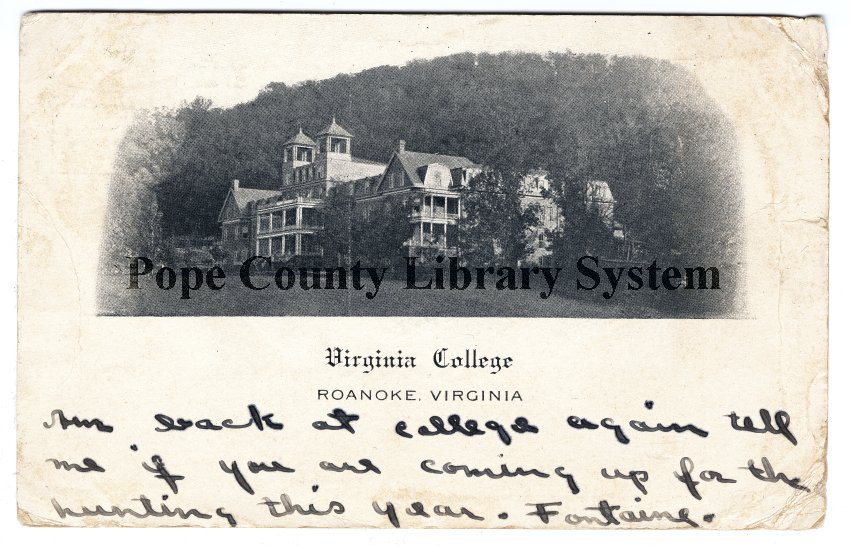 Pope County Library System
Virginia College
ROANOKE, VIRGINIA
Am back at college again tell
me if you are coming up for the
hunting this year. Fontaine.